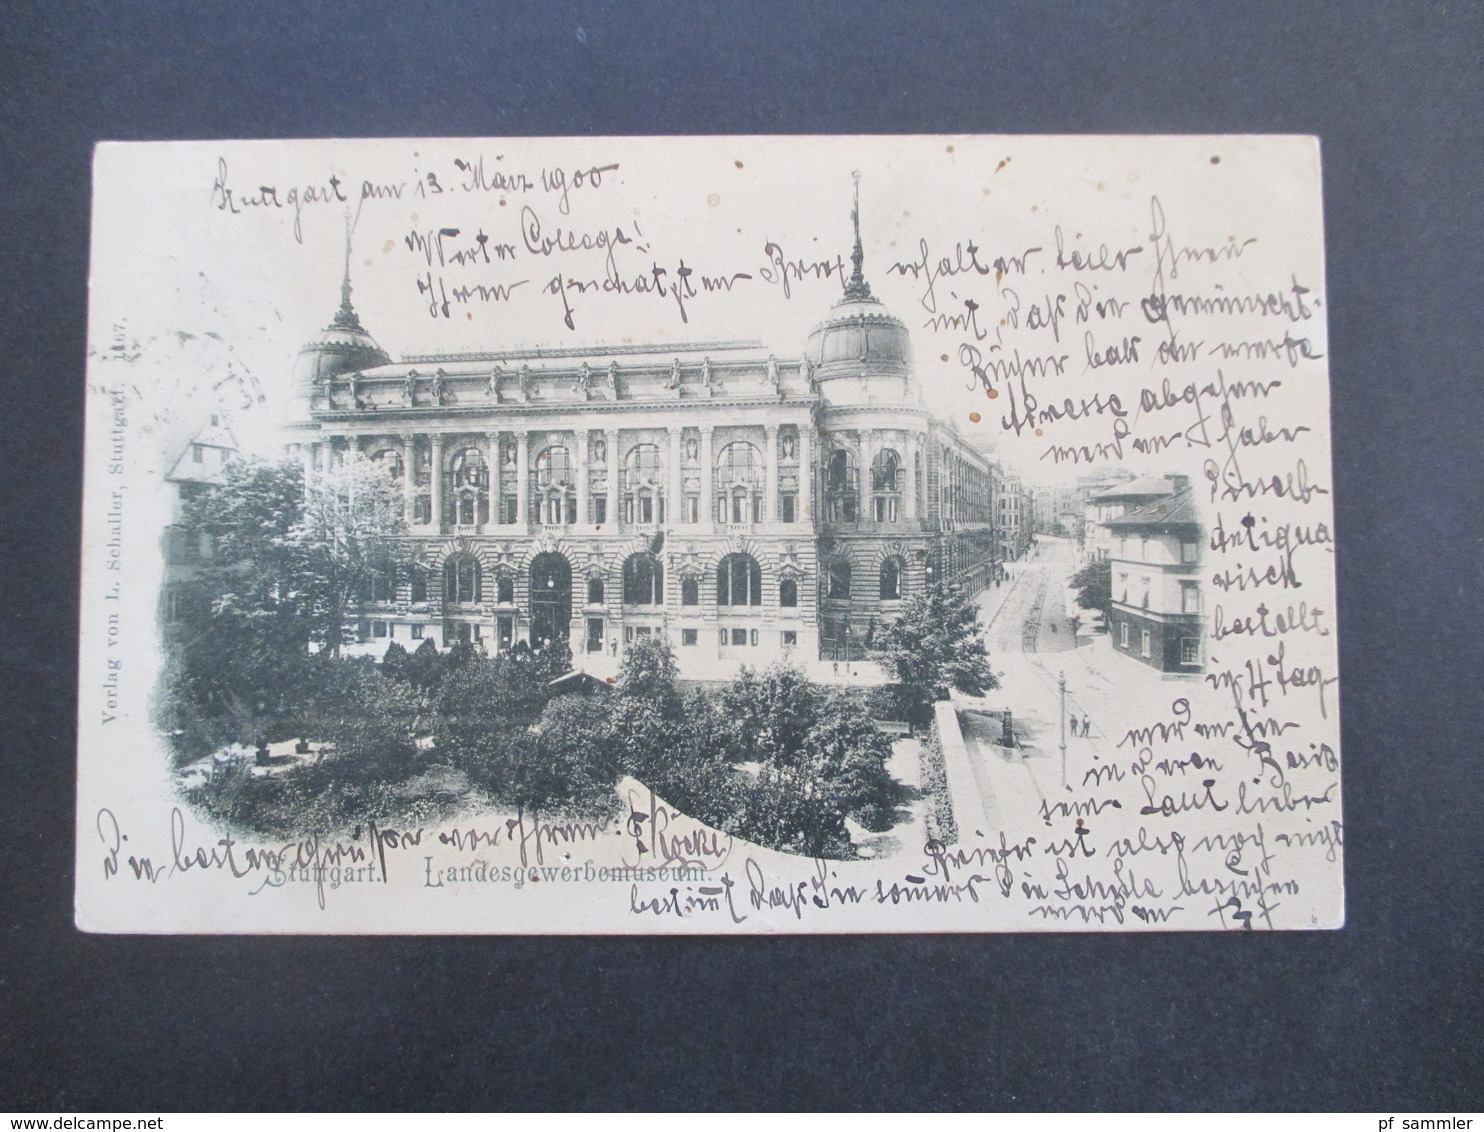 Stuttgart am 13. März 1900.
Werter College!
Ihren geschätzten Brief erhalten. teile Ihnen
mit, daß die gewünscht.
Bücher bald an werte
Adresse abgehen
werden. habe
dieselb.
Antiqua-
risch
bestellt
in 4 Tag.
werden Sie
in deren Besitz
sein. Laut lieber
Briefes ist also noch nicht
bestimmt daß Sie som̅ers die Schule besuchen
werden
Die besten Grüße von Ihrem
Stuttgart. Landesgewerbemuseum.
Verlag von L. Schaller, Stuttgart. 1167.
www.delcampe.net
pf_sammler